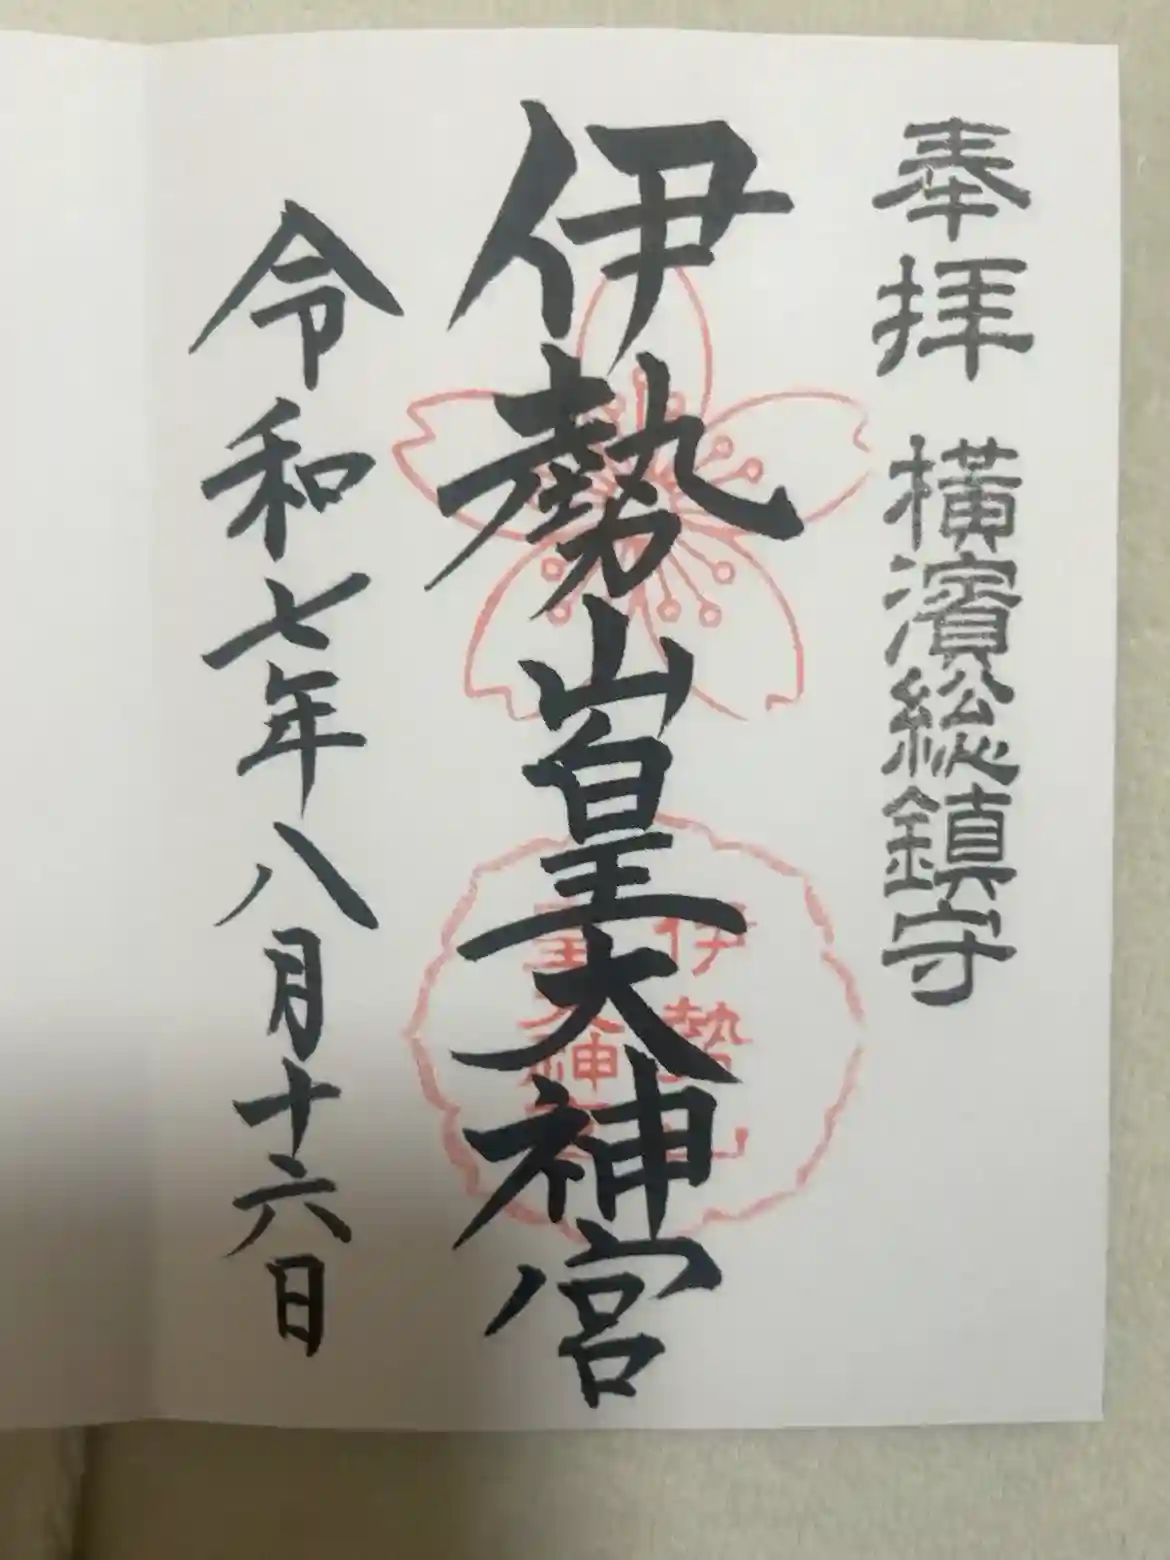 奉拝 横濱総鎮守
伊勢山皇大神宮
伊勢山
皇大神宮
令和七年八月十六日